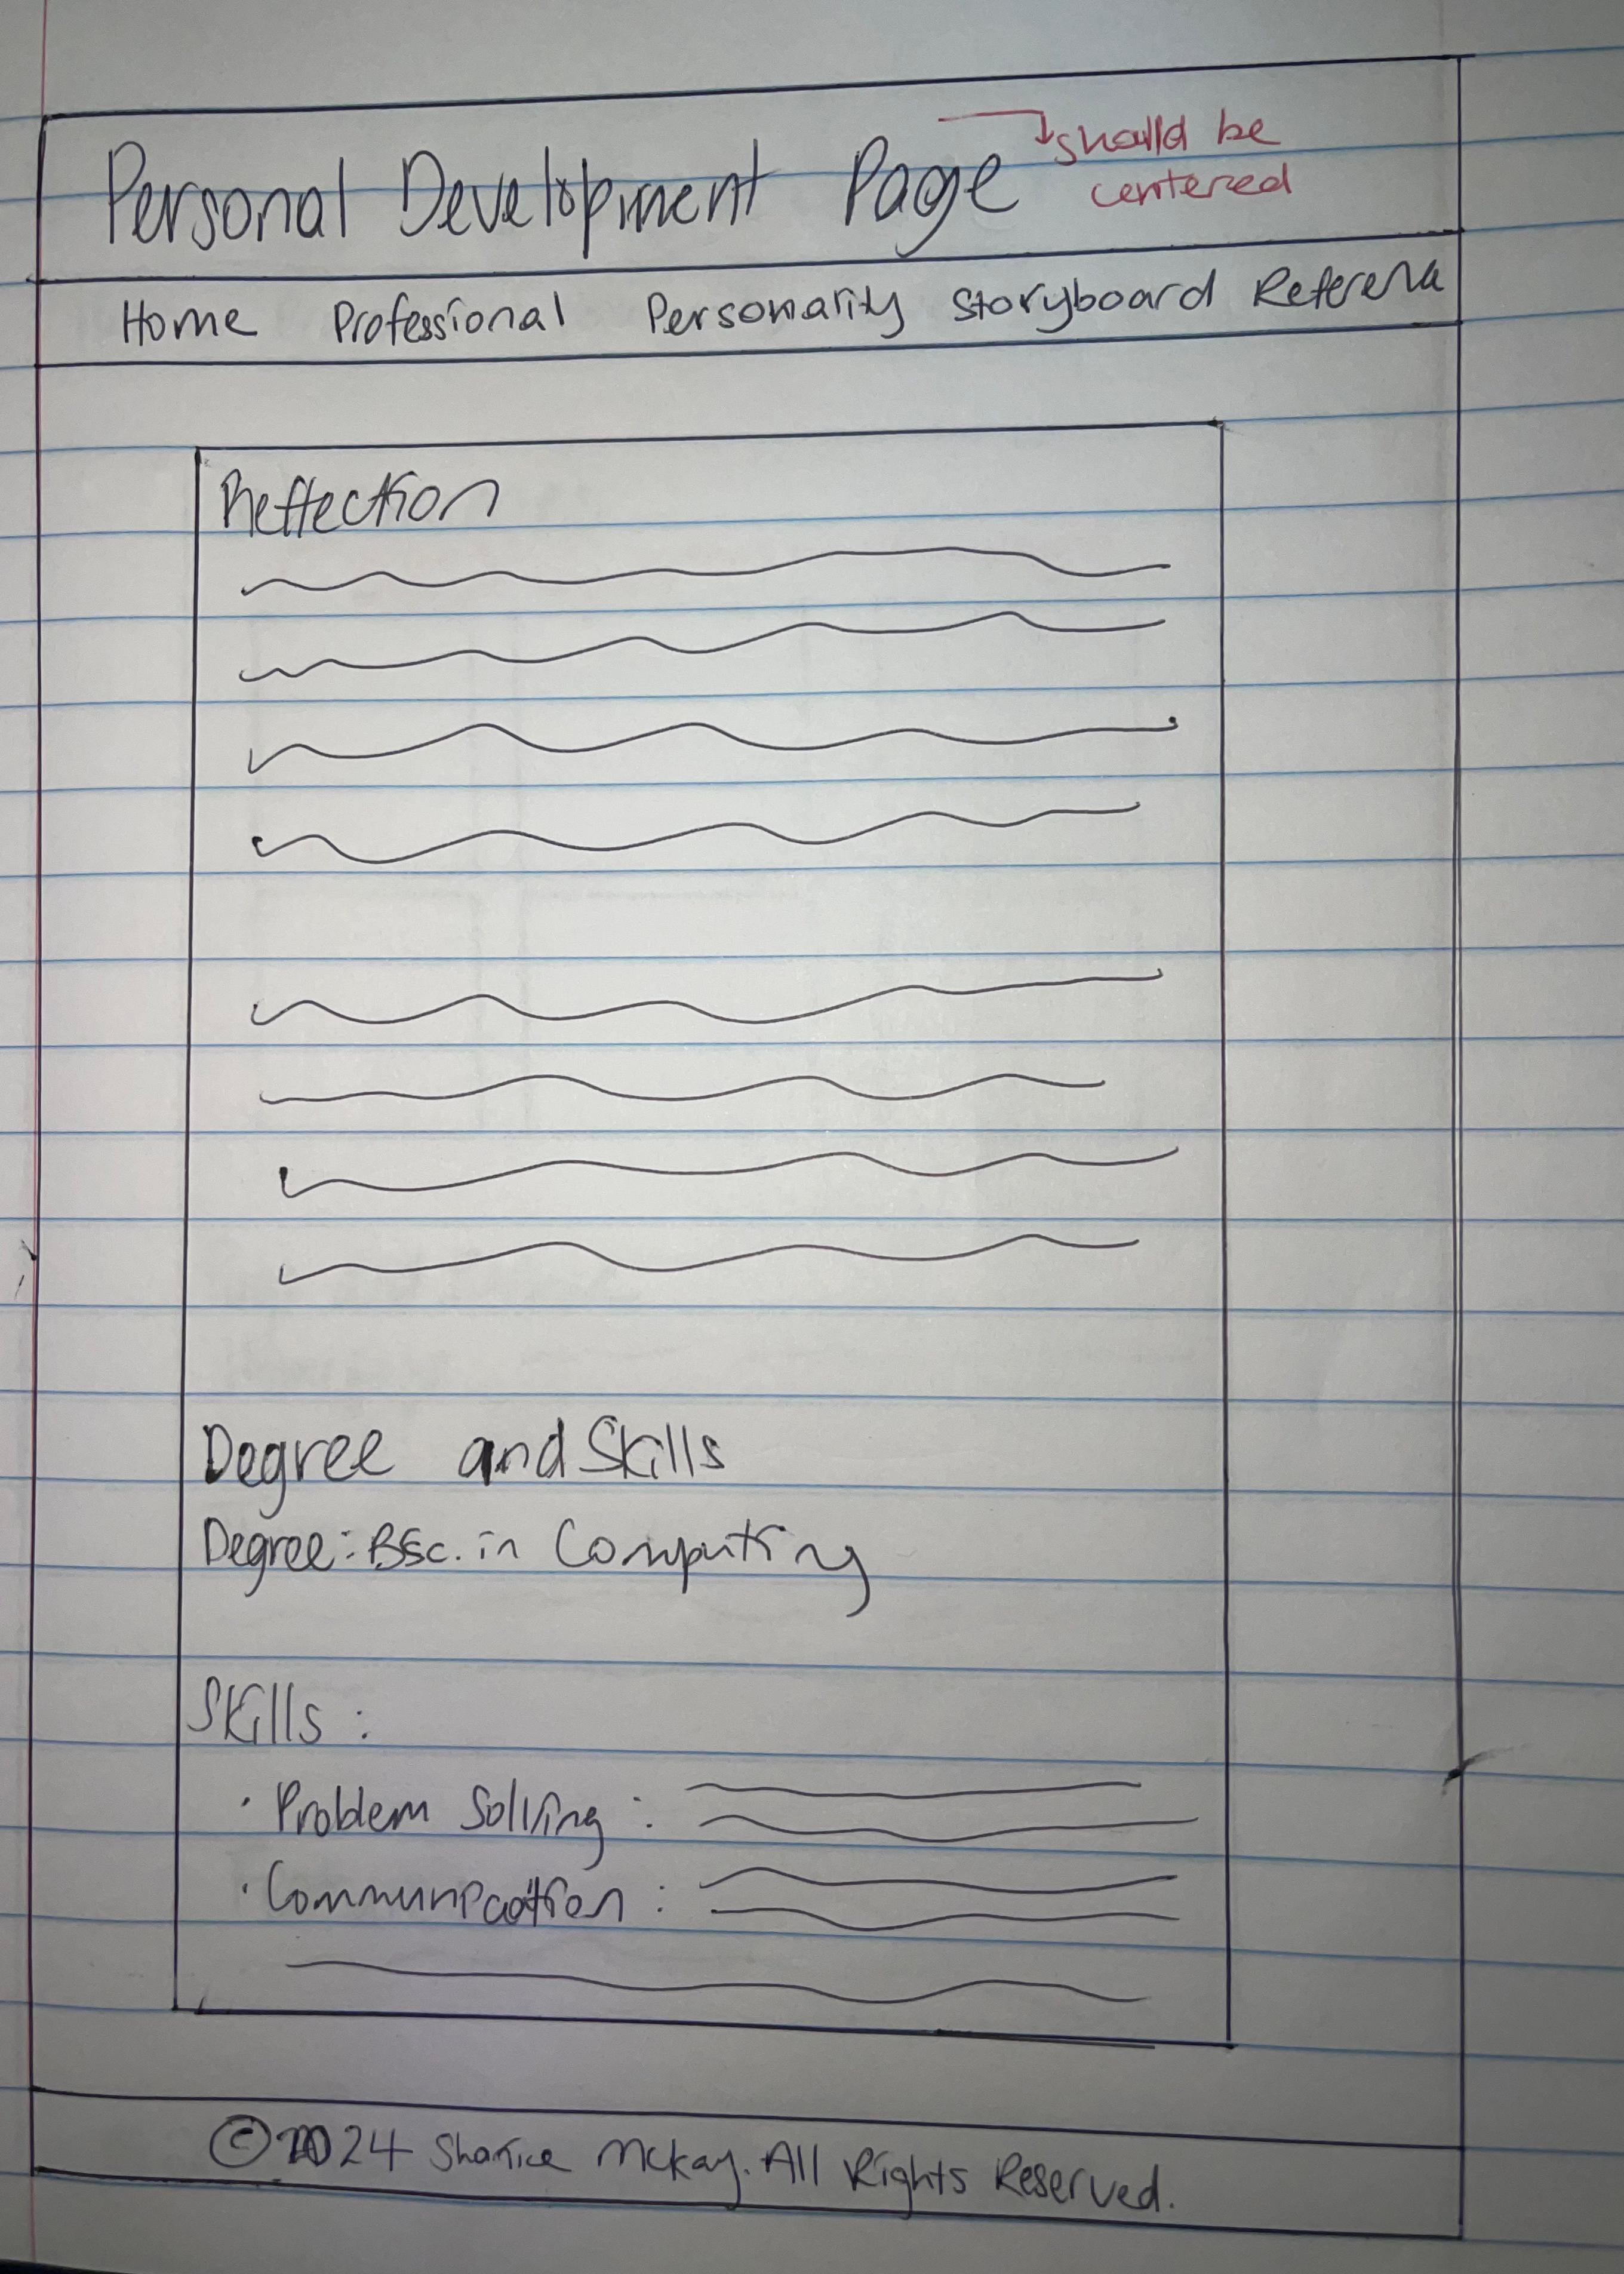 Personal Development Page
should be
centered
Home Professional Personality Storyboard Referena
Reflection
Degree and Skills
Degree: BSc. in Computing
Skills :
· Problem Solving :
· Communication :
© 2024 Shanice Mckay. All Rights Reserved.